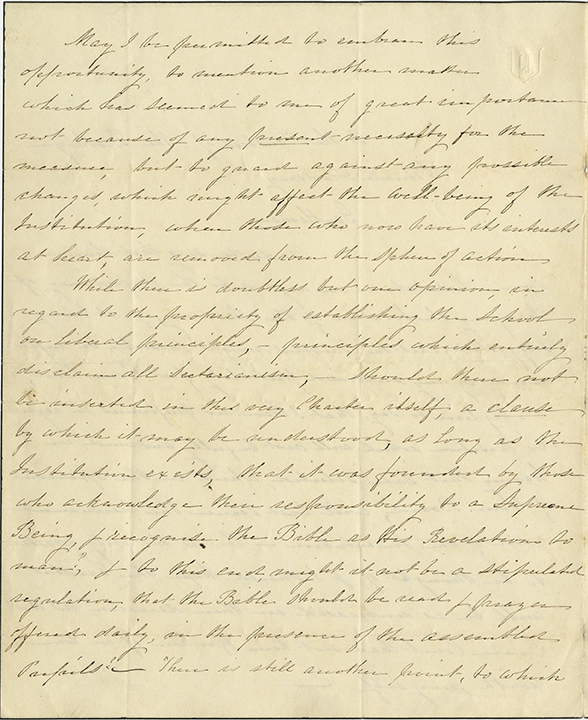 May I be permitted to embrace this
opportunity, to mention another matter
which has seemed to me of great importance
not because of any present necessity for the
measure, but to guard against any possible
changes, which might affect the well-being of the
Institution, when those who now have its interests
at heart are removed from the sphere of action
While there is doubtless but one opinion, in
regard to the propriety of establishing the School
on liberal principles, – principles which entirely
disclaim all Sectarianism, – should there not
be inserted in the very Charter itself, a clause
by which it may be understood, as long as the
Institution exists, that it was founded by those
who acknowledge their responsibility to a Supreme
Being, & recognise the Bible as His Revelation to
man?, & to this end, might it not be a stipulated
regulation, that the Bible should be read & prayer
offered daily, in the presence of the assembled
Pupils? – There is still another point, to which